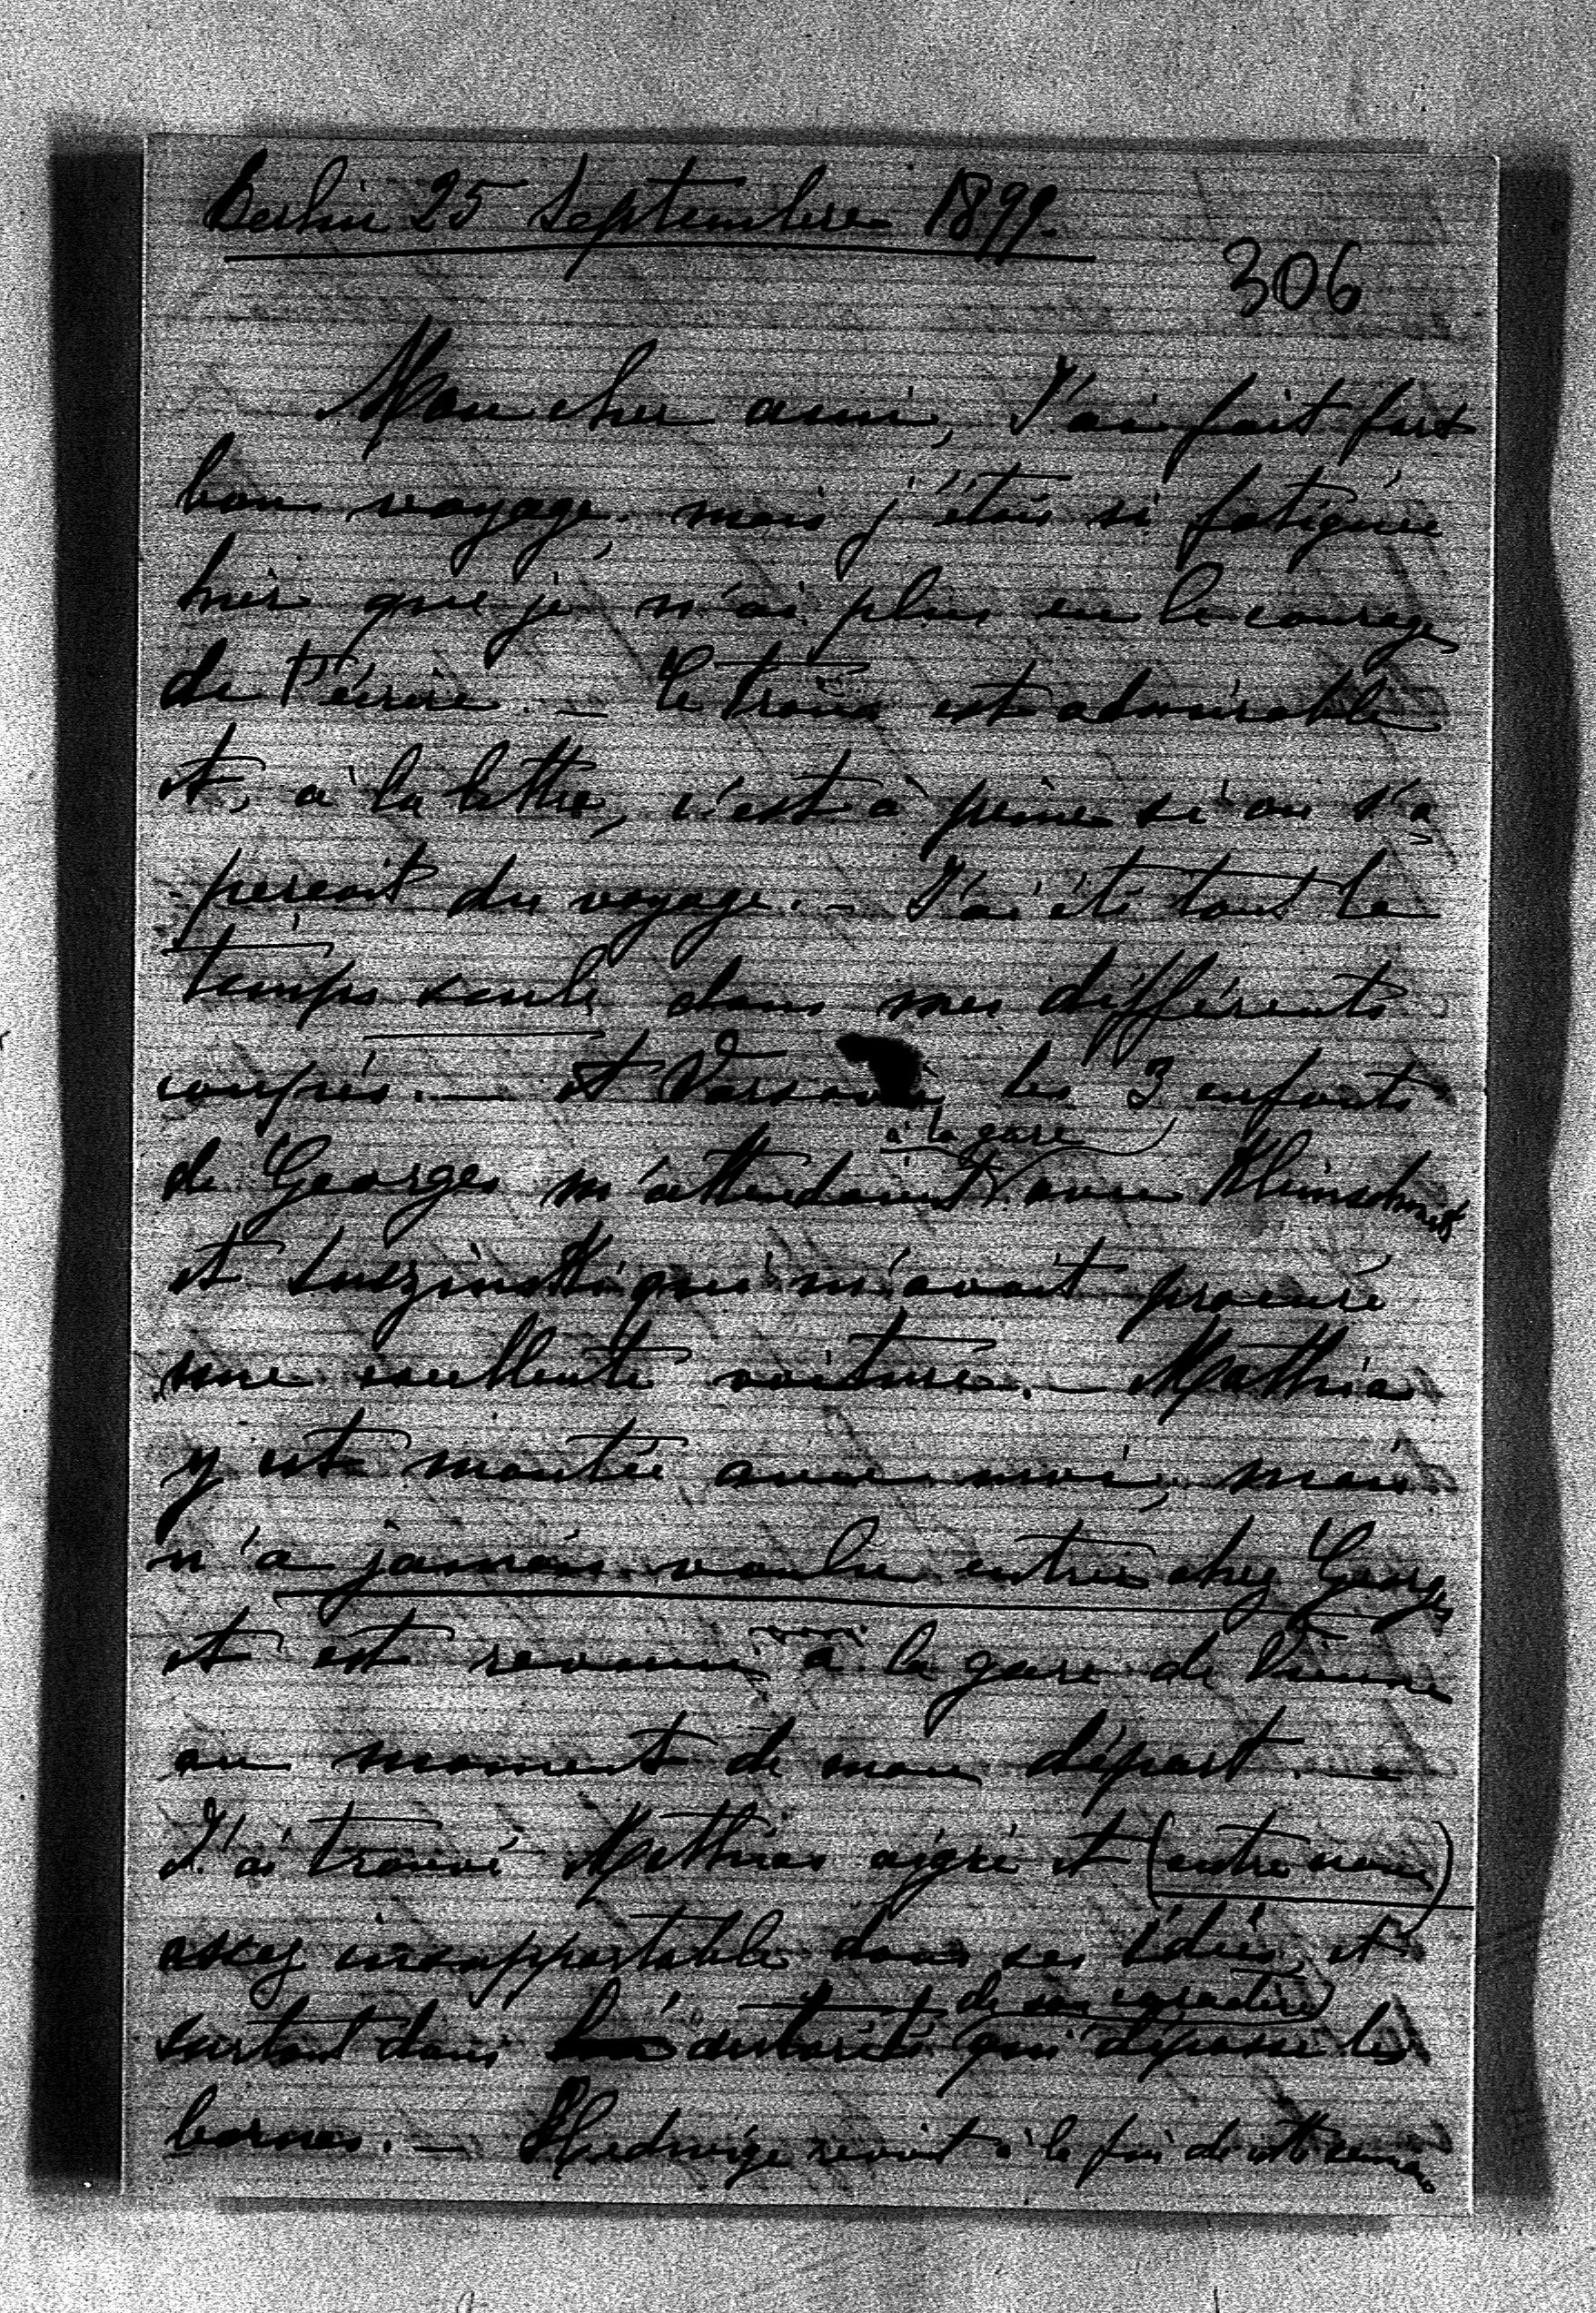 Berlin 25 Septembre 1899.
306
Mon cher ami, J'ai fait fort
bon voyage, mais j'étais si fatiguée
hier que je n'ai plus eu le courage
de t'écrire. — Ce train est admirable
et, à la lettre, c'est à peine si on s'a
perçoit du voyage. — J'ai été tout le
temps seule dans mes différents
coupés. — A Varsovie, les 3 enfants
à la gare
de Georges m'attendaient avec
et qui m'avait procuré
une excellente voiture. — Mathias
y est monté avec moi, mais
n'a jamais voulu entrer chez Georges
et est revenu à la gare de Vienne
au moment de mon départ. —
J'ai trouvé Mathias aigri et (entre nous)
assez insupportable dans ses idées, et
de son caractère
surtout dans qui dépasse les
bornes. — Hedwige revient à la fin de cette semaine